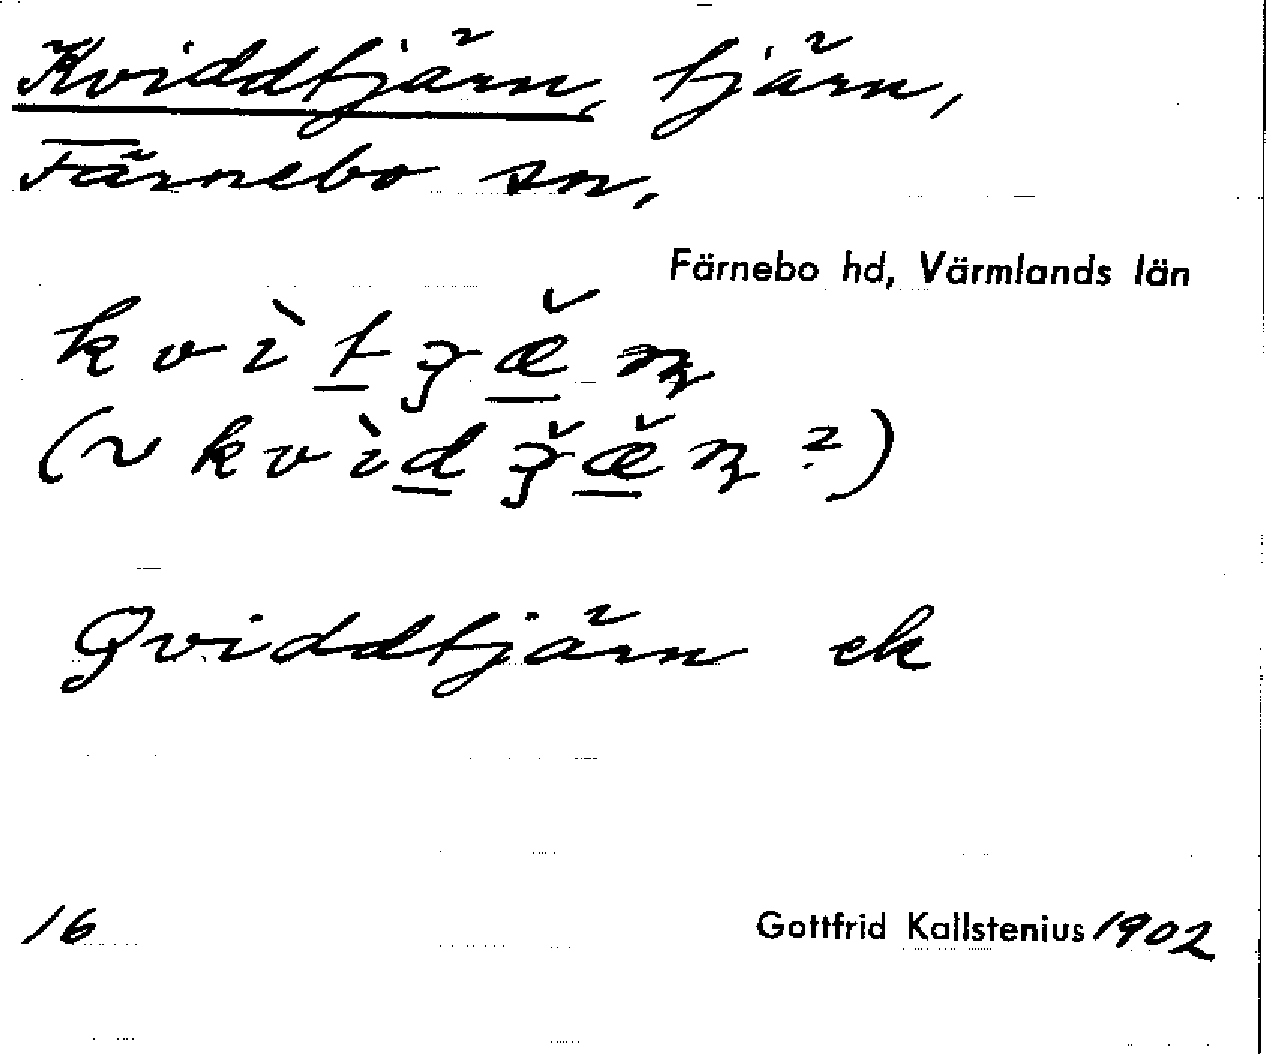 Kviddtjärn, tjärn,
Färnebo sn,
Färnebo hd, Värmlands län
Qviddtjärn ek
16
Gottfrid Kallstenius 1902